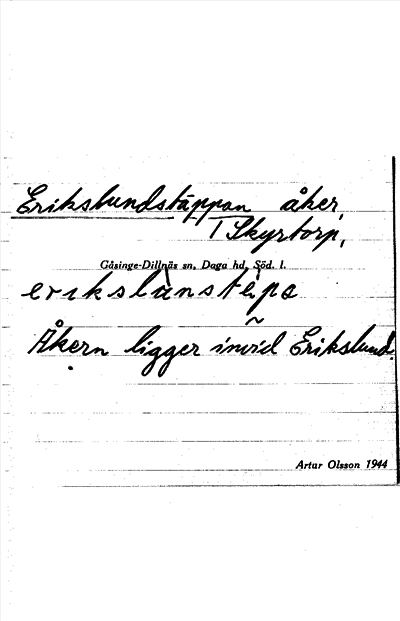 Erikslundstäppan åker,
T Skyrtorp,
Gåsinge-Dillnäs sn, Daga hd, Söd. l.
Åkern ligger invid Erikslund.
Artur Olsson 1944